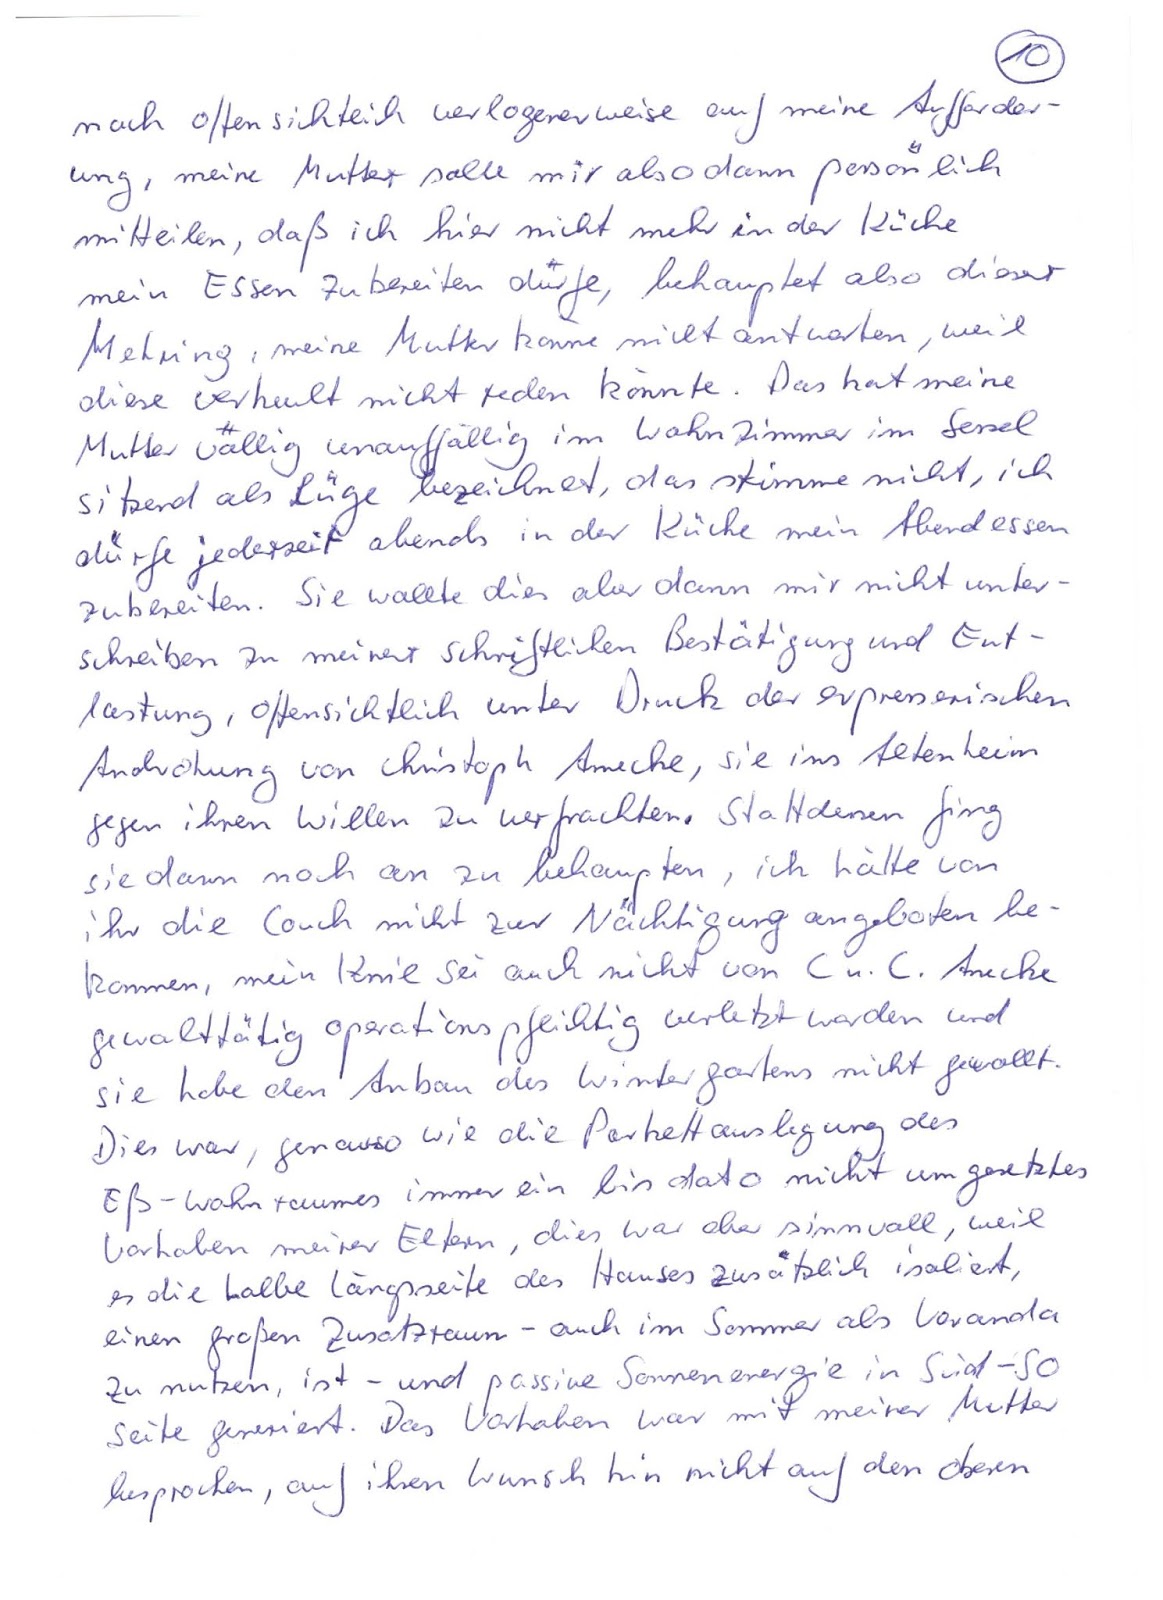 10
noch offensichtlich verlogenerweise auf meine Aufforder-
ung, meine Mutter solle mir also dann persönlich
mitteilen, daß ich hier nicht mehr in der Küche
mein Essen zubereiten dürfe, behauptet also dieser
Mehring, meine Mutter könne nicht antworten, weil
diese verheult nicht reden könnte. Das hat meine
Mutter völlig unauffällig im Wohnzimmer im Sessel
sitzend als Lüge bezeichnet, das stimme nicht, ich
dürfe jederzeit abends in der Küche mein Abendessen
zubereiten. Sie wollte dies aber dann mir nicht unter-
schreiben zu meiner schriftlichen Bestätigung und Ent-
lastung, offensichtlich unter Druck der erpresserischen
Androhung von Christoph Amecke, sie ins Altenheim
gegen ihren Willen zu verfrachten. Stattdessen fing
sie dann noch an zu behaupten, ich hätte von
ihr die Couch nicht zur Nächtigung angeboten be-
kommen, mein Knie sei auch nicht von C u. C. Amecke
gewalttätig operationspflichtig verletzt worden und
sie habe den Anbau des Wintergartens nicht gewollt.
Dies war, genauso wie die Parkettauslegung des
Eß-Wohnraumes immer ein bis dato nicht umgesetztes
Vorhaben meiner Eltern, dies war aber sinnvoll, weil
es die halbe Längsseite des Hauses zusätzlich isoliert,
einen großen Zusatzraum - auch im Sommer als Veranda
zu nutzen, ist - und passive Sonnenenergie in Süd-SO
Seite generiert. Das Vorhaben war mit meiner Mutter
besprochen, auf ihren Wunsch hin nicht auf den oberen